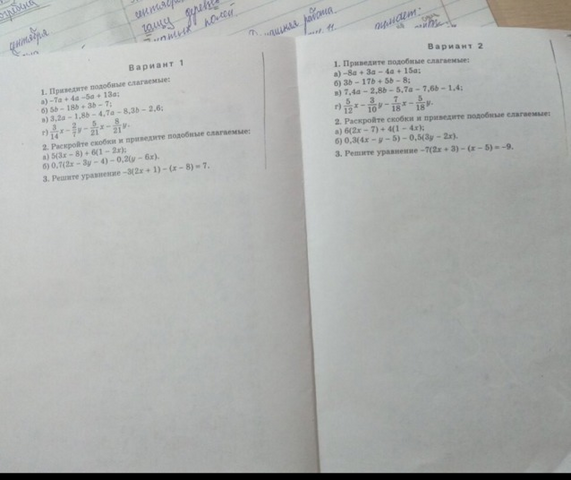 сентября
Вариант 1
1. Приведите подобные слагаемые:
а) –7a + 4a –5a + 13a;
б) 5b – 18b + 3b – 7;
в) 3,2a – 1,8b – 4,7a – 8,3b – 2,6;
г) 3/14 x – 2/7 y – 5/21 x – 8/21 y.
2. Раскройте скобки и приведите подобные слагаемые:
а) 5(3x – 8) + 6(1 – 2x);
б) 0,7(2x – 3y – 4) – 0,2(y – 6x).
3. Решите уравнение –3(2x + 1) – (x – 8) = 7.
Вариант 2
1. Приведите подобные слагаемые:
а) –8a + 3a – 4a + 15a;
б) 3b – 17b + 5b – 8;
в) 7,4a – 2,8b – 5,7a – 7,6b – 1,4;
г) 5/12 x – 3/10 y – 7/18 x – 5/18 y.
2. Раскройте скобки и приведите подобные слагаемые:
а) 6(2x – 7) + 4(1 – 4x);
б) 0,3(4x – y – 5) – 0,5(3y – 2x).
3. Решите уравнение –7(2x + 3) – (x – 5) = –9.